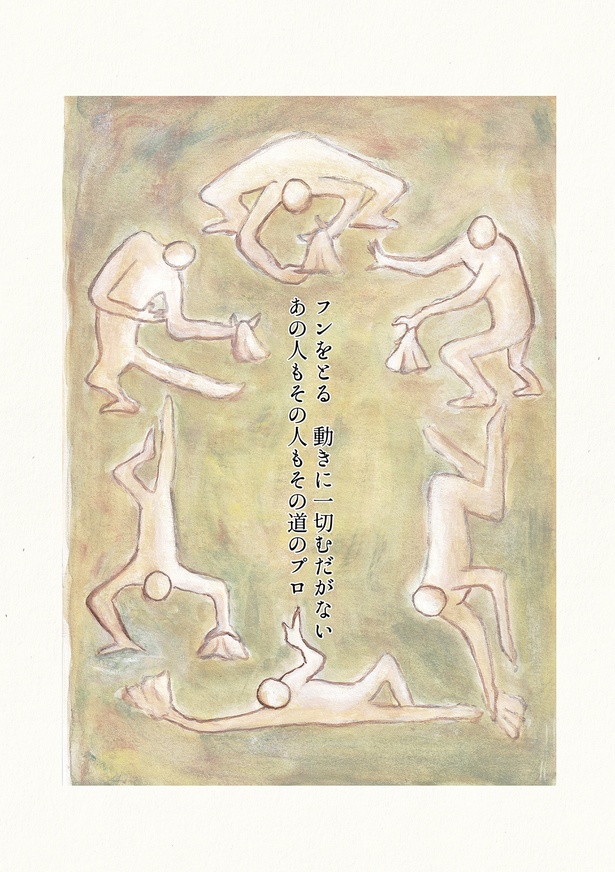 フンをとる　動きに一切むだがない
あの人もその人もその道のプロ